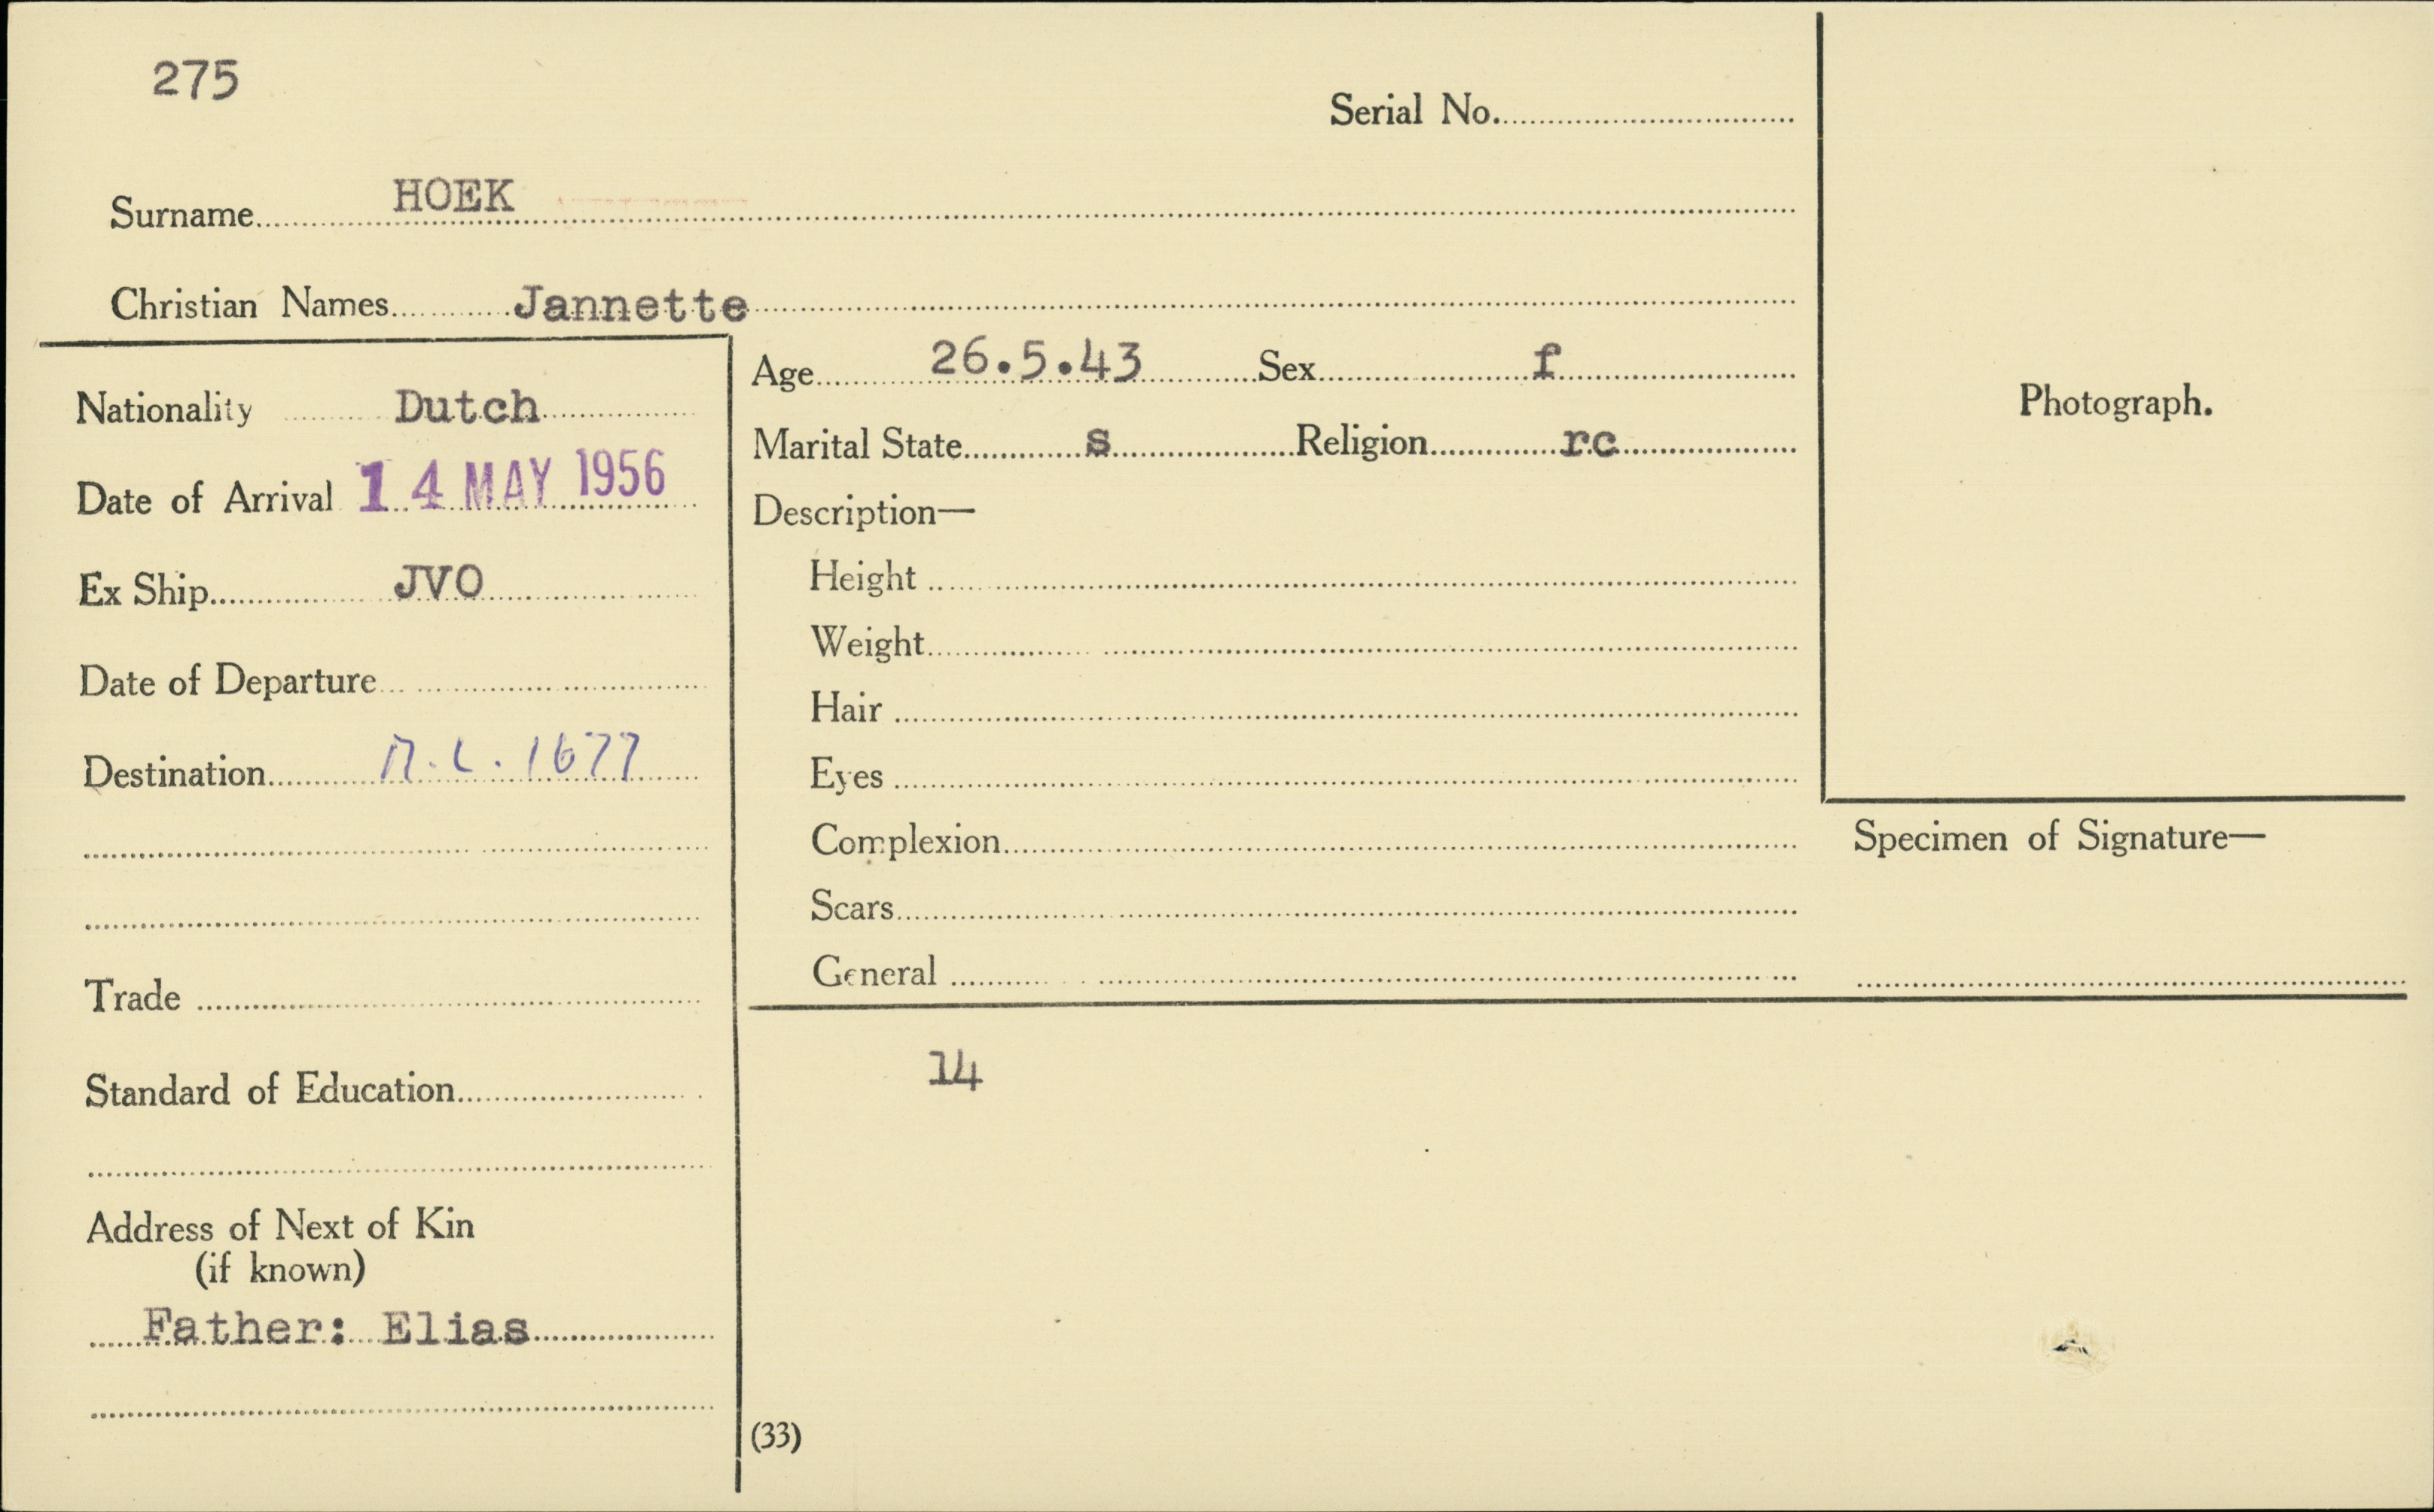 275
Serial No.
Surname HOEK
Christian Names Jannette
Nationality Dutch
Date of Arrival 14 MAY 1956
Ex Ship JVO
Date of Departure
Destination 1677
Trade
Standard of Education
Address of Next of Kin
(if known)
Father: Elias
Age 26.5.43 Sex f
Marital State s Religion rc
Description—
Height
Weight
Hair
Eyes
Complexion
Scars
General
14
(33)
Photograph.
Specimen of Signature—